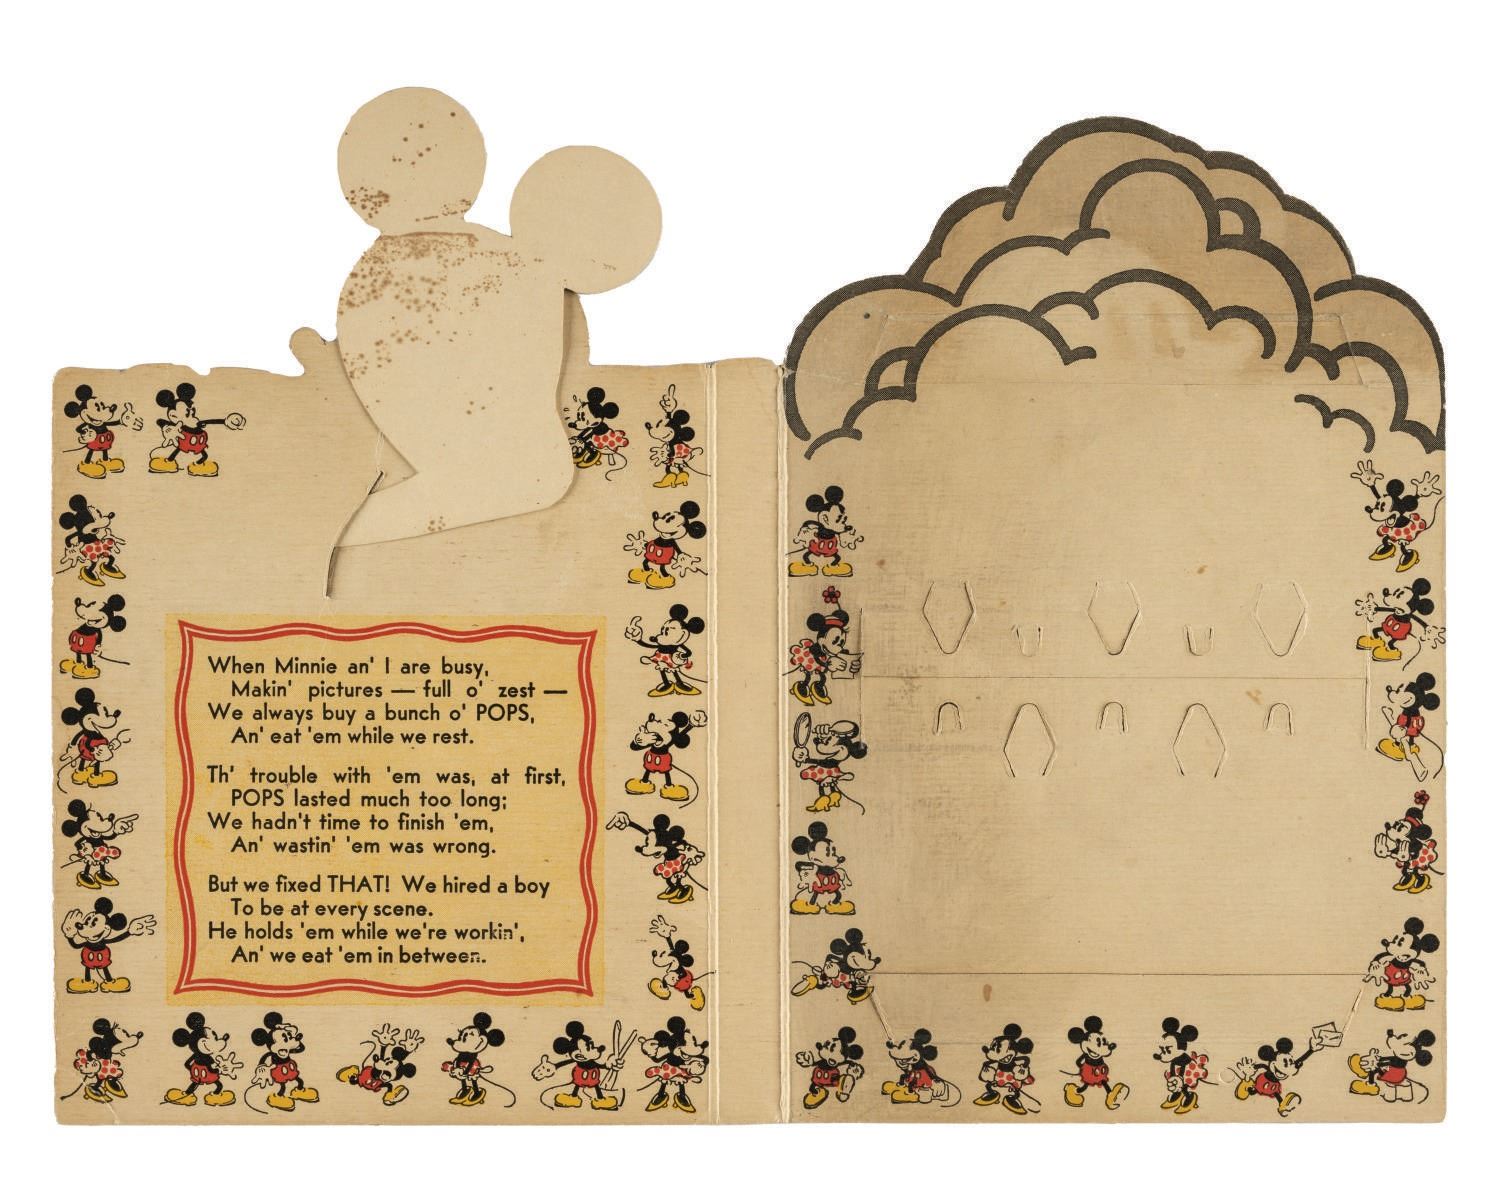 When Minnie an' I are busy,
Makin' pictures — full o' zest —
We always buy a bunch o' POPS,
An' eat 'em while we rest.
Th' trouble with 'em was, at first,
POPS lasted much too long;
We hadn't time to finish 'em,
An' wastin' 'em was wrong.
But we fixed THAT! We hired a boy
To be at every scene.
He holds 'em while we're workin',
An' we eat 'em in between.